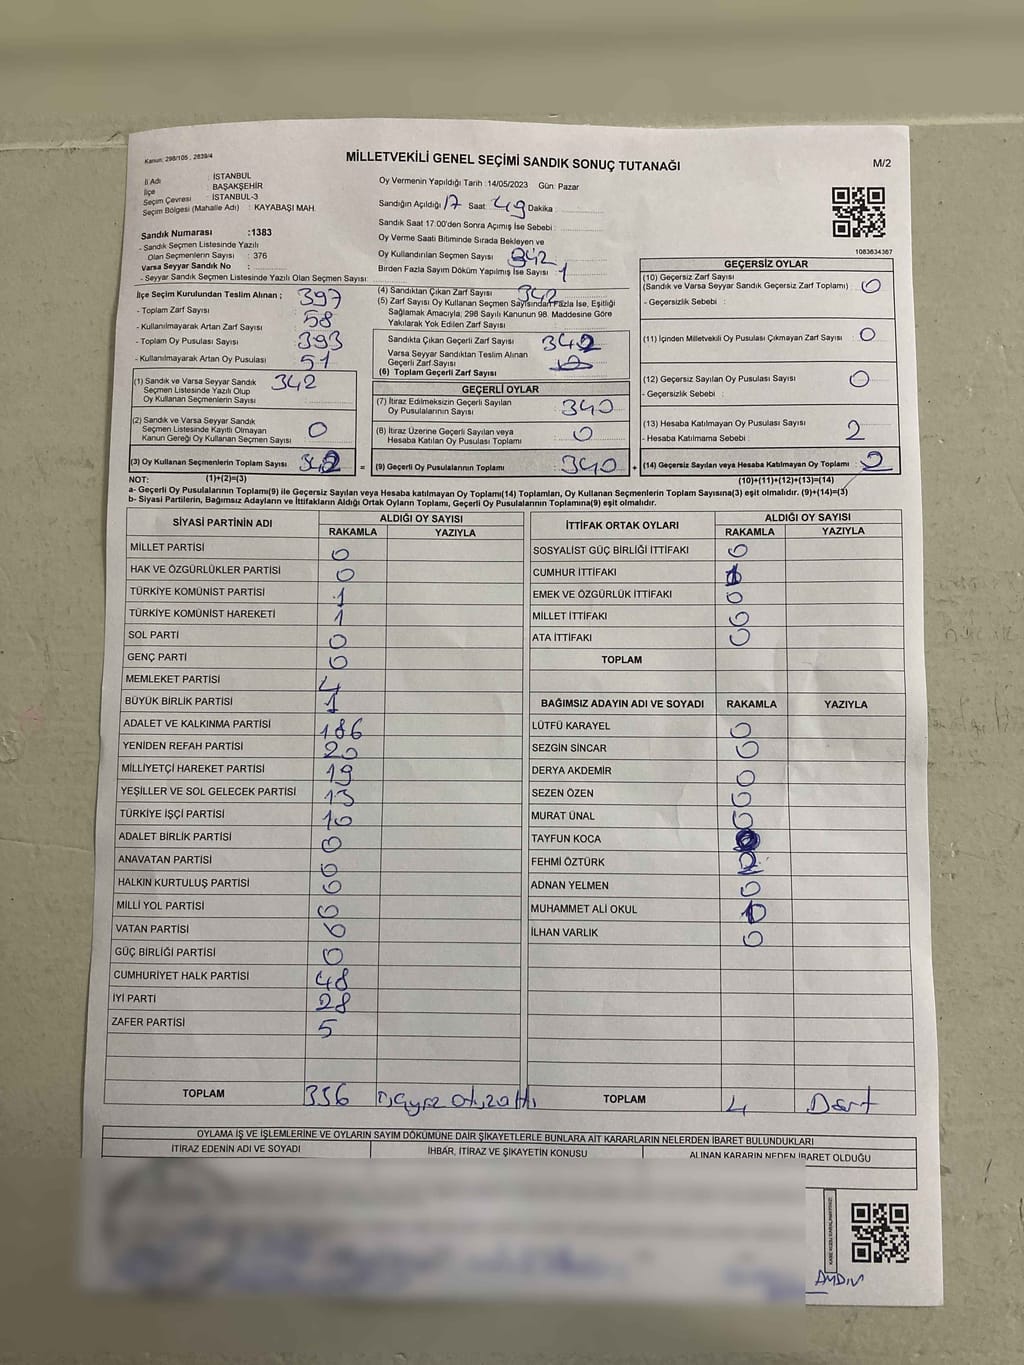 Kanun: 298/105 , 2839/4
MİLLETVEKİLİ GENEL SEÇİMİ SANDIK SONUÇ TUTANAĞI
M/2
İli Adı : İSTANBUL
İlçe : BAŞAKŞEHİR
Seçim Çevresi : İSTANBUL-3
Seçim Bölgesi (Mahalle Adı) : KAYABAŞI MAH.
Oy Vermenin Yapıldığı Tarih :14/05/2023 Gün: Pazar
Sandığın Açıldığı 17 Saat 49 Dakika
Sandık Saat 17:00'den Sonra Açımış İse Sebebi :
Sandık Numarası :1383
- Sandık Seçmen Listesinde Yazılı
Olan Seçmenlerin Sayısı : 376
Varsa Seyyar Sandık No :
- Seyyar Sandık Seçmen Listesinde Yazılı Olan Seçmen Sayısı:
Oy Verme Saati Bitiminde Sırada Bekleyen ve
Oy Kullandırılan Seçmen Sayısı 342
Birden Fazla Sayım Döküm Yapılmış İse Sayısı : 1
1083634367
İlçe Seçim Kurulundan Teslim Alınan ; 397
- Toplam Zarf Sayısı
- Kullanılmayarak Artan Zarf Sayısı 58
- Toplam Oy Pusulası Sayısı 393
- Kullanılmayarak Artan Oy Pusulası 51
(1) Sandık ve Varsa Seyyar Sandık 342
Seçmen Listesinde Yazılı Olup
Oy Kullanan Seçmenlerin Sayısı
(2) Sandık ve Varsa Seyyar Sandık
Seçmen Listesinde Kayıtlı Olmayan
Kanun Gereği Oy Kullanan Seçmen Sayısı 0
(3) Oy Kullanan Seçmenlerin Toplam Sayısı 342
(4) Sandıktan Çıkan Zarf Sayısı 342
(5) Zarf Sayısı Oy Kullanan Seçmen Sayısından Fazla İse, Eşitliği
Sağlamak Amacıyla; 298 Sayılı Kanunun 98. Maddesine Göre
Yakılarak Yok Edilen Zarf Sayısı :
Sandıkta Çıkan Geçerli Zarf Sayısı 342
Varsa Seyyar Sandıktan Teslim Alınan
Geçerli Zarf Sayısı
(6) Toplam Geçerli Zarf Sayısı
GEÇERLİ OYLAR
(7) İtiraz Edilmeksizin Geçerli Sayılan
Oy Pusulalarının Sayısı 340
(8) İtiraz Üzerine Geçerli Sayılan veya
Hesaba Katılan Oy Pusulası Toplamı 0
= (9) Geçerli Oy Pusulalarının Toplamı 340 +
GEÇERSİZ OYLAR
(10) Geçersiz Zarf Sayısı
(Sandık ve Varsa Seyyar Sandık Geçersiz Zarf Toplamı) : 0
- Geçersizlik Sebebi :
(11) İçinden Milletvekili Oy Pusulası Çıkmayan Zarf Sayısı : 0
(12) Geçersiz Sayılan Oy Pusulası Sayısı : 0
- Geçersizlik Sebebi :
(13) Hesaba Katılmayan Oy Pusulası Sayısı : 2
- Hesaba Katılmama Sebebi :
(14) Geçersiz Sayılan veya Hesaba Katılmayan Oy Toplamı : 2
NOT: (1)+(2)=(3) (10)+(11)+(12)+(13)=(14)
a- Geçerli Oy Pusulalarının Toplamı(9) ile Geçersiz Sayılan veya Hesaba katılmayan Oy Toplamı(14) Toplamları, Oy Kullanan Seçmenlerin Toplam Sayısına(3) eşit olmalıdır. (9)+(14)=(3)
b- Siyasi Partilerin, Bağımsız Adayların ve İttifakların Aldığı Ortak Oyların Toplamı, Geçerli Oy Pusulalarının Toplamına(9) eşit olmalıdır.
SİYASİ PARTİNİN ADI ALDIĞI OY SAYISI
RAKAMLA YAZIYLA
MİLLET PARTİSİ 0
HAK VE ÖZGÜRLÜKLER PARTİSİ 0
TÜRKİYE KOMÜNİST PARTİSİ 1
TÜRKİYE KOMÜNİST HAREKETİ 1
SOL PARTİ 0
GENÇ PARTİ 0
MEMLEKET PARTİSİ 4
BÜYÜK BİRLİK PARTİSİ 1
ADALET VE KALKINMA PARTİSİ 186
YENİDEN REFAH PARTİSİ 20
MİLLİYETÇİ HAREKET PARTİSİ 19
YEŞİLLER VE SOL GELECEK PARTİSİ 13
TÜRKİYE İŞÇİ PARTİSİ 10
ADALET BİRLİK PARTİSİ 0
ANAVATAN PARTİSİ 0
HALKIN KURTULUŞ PARTİSİ 0
MİLLİ YOL PARTİSİ 0
VATAN PARTİSİ 0
GÜÇ BİRLİĞİ PARTİSİ 0
CUMHURİYET HALK PARTİSİ 48
İYİ PARTİ 28
ZAFER PARTİSİ 5
TOPLAM 336
İTTİFAK ORTAK OYLARI ALDIĞI OY SAYISI
RAKAMLA YAZIYLA
SOSYALİST GÜÇ BİRLİĞİ İTTİFAKI 0
CUMHUR İTTİFAKI 1
EMEK VE ÖZGÜRLÜK İTTİFAKI 0
MİLLET İTTİFAKI 0
ATA İTTİFAKI 0
TOPLAM
BAĞIMSIZ ADAYIN ADI VE SOYADI RAKAMLA YAZIYLA
LÜTFÜ KARAYEL 0
SEZGİN SİNCAR 0
DERYA AKDEMİR 0
SEZEN ÖZEN 0
MURAT ÜNAL 0
TAYFUN KOCA
FEHMİ ÖZTÜRK 2
ADNAN YELMEN 0
MUHAMMET ALİ OKUL
İLHAN VARLIK 0
TOPLAM 4 Dört
OYLAMA İŞ VE İŞLEMLERİNE VE OYLARIN SAYIM DÖKÜMÜNE DAİR ŞİKAYETLERLE BUNLARA AİT KARARLARIN NELERDEN İBARET BULUNDUKLARI
İTİRAZ EDENİN ADI VE SOYADI İHBAR, İTİRAZ VE ŞİKAYETİN KONUSU ALINAN KARARIN NEDEN İBARET OLDUĞU
AYDIN